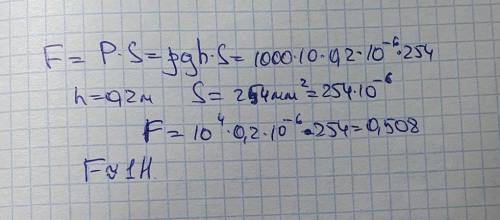 F = P·S = ρgh·S = 1000·10·0,2·10⁻⁶·254
h = 0,2м S = 254мм² = 254·10⁻⁶
F = 10⁴·0,2·10⁻⁶·254 = 0,508
F ≈ 1Н.